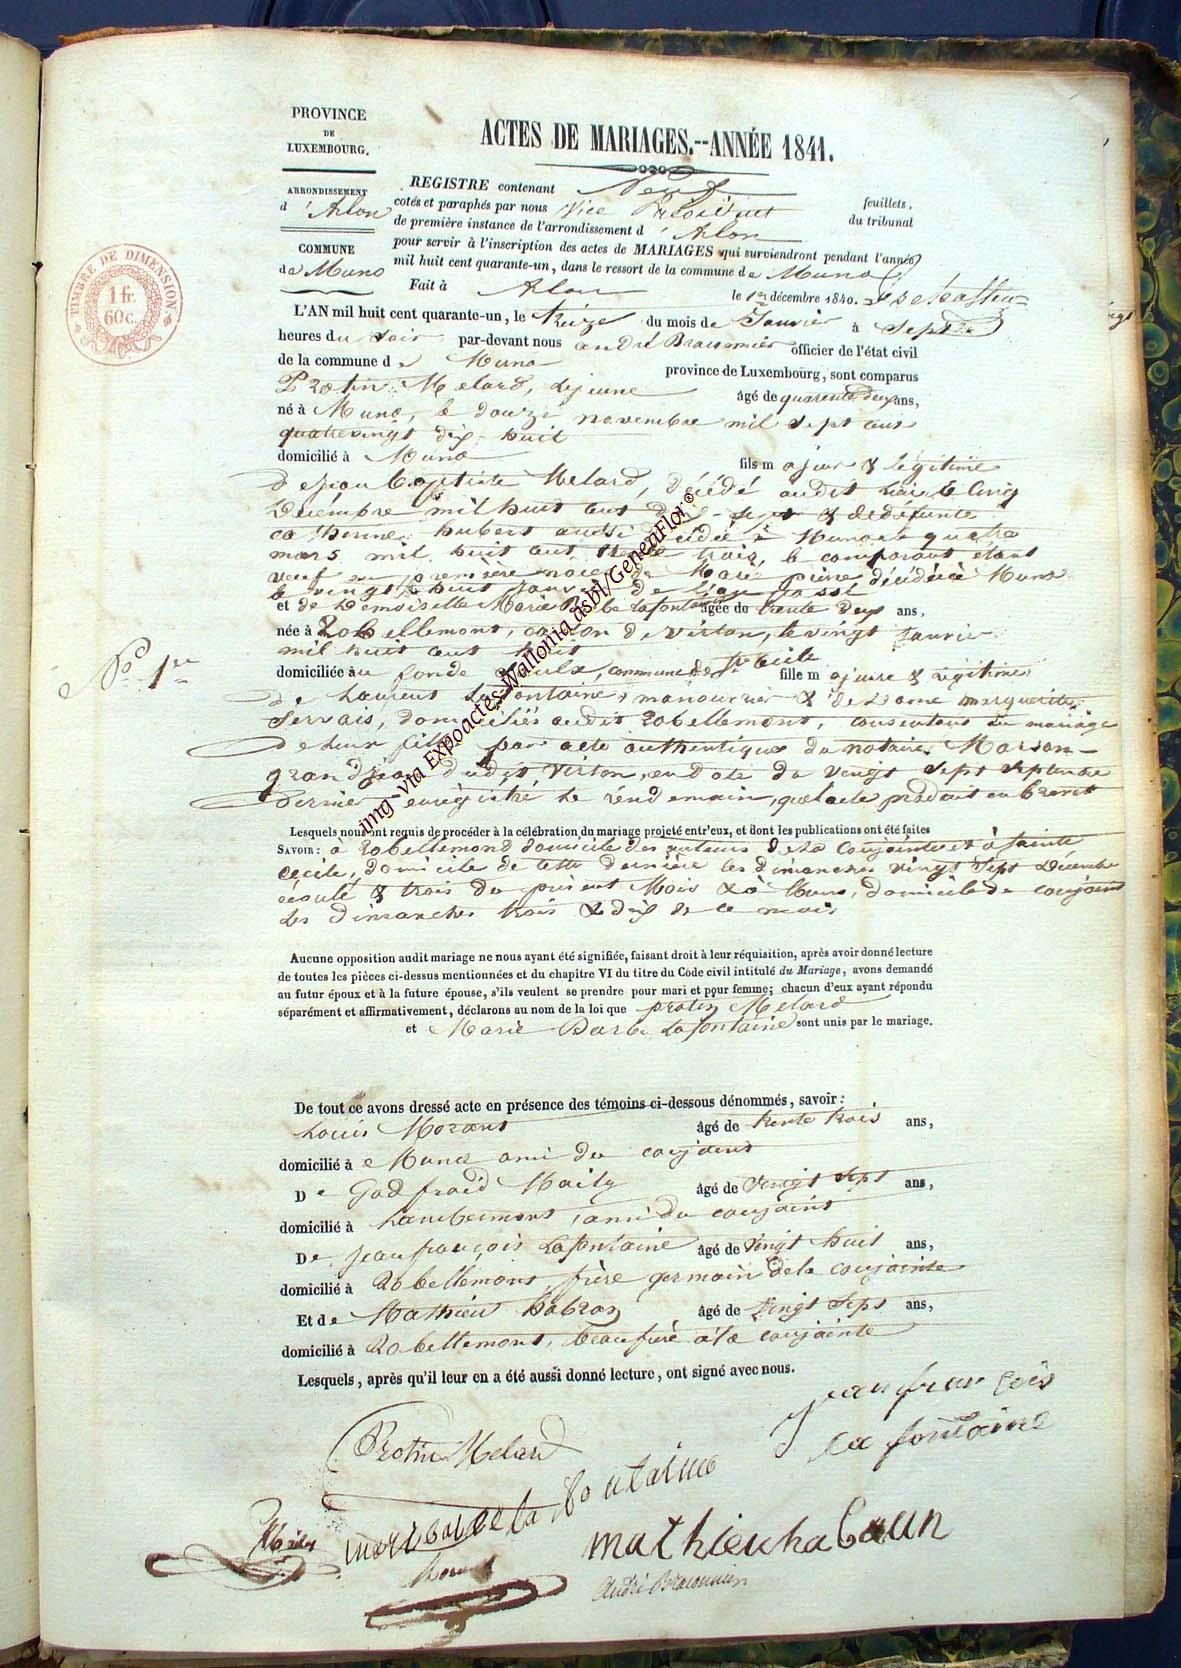 PROVINCE
DE
LUXEMBOURG.
ACTES DE MARIAGES.--ANNÉE 1841.
ARRONDISSEMENT
d'Arlon
COMMUNE
de Muno
TIMBRE DE DIMENSION
1 fr.
60 c.
REGISTRE contenant neuf feuillets,
cotés et paraphés par nous Vice Président du tribunal
de première instance de l'arrondissement d'Arlon
pour servir à l'inscription des actes de MARIAGES qui surviendront pendant l'année
mil huit cent quarante-un, dans le ressort de la commune de Muno
Fait à Arlon le 1er décembre 1840.
L'AN mil huit cent quarante-un, le treize du mois de Janvier à sept
heures du soir par-devant nous andré Braconnier officier de l'état civil
de la commune de Muno province de Luxembourg, sont comparus
Protin Melard, le jeune âgé de quarante deux ans,
né à Muno, le douze novembre mil sept cent
quatrevingt dix-huit
domicilié à Muno fils majeur & légitime
de jean Baptiste Melard, décédé audit lieu le cinq
Décembre mil huit cent dix-sept & de défunte
catherine hubert aussi décédée à Muno le quatre
mars mil huit cent trente trois, le comparant étant
veuf en première noce de Marie pierre décédée à Muno
le vingt huit Janvier de l'an passé
et de Demoiselle Marie Barbe Lafontaine âgée de trente deux ans,
née à Robellemont, canton de virton, le vingt Janvier
mil huit cent huit
No 1er
domiciliée au fonde commune de Ste Cécile fille majeure & légitime
de Laurent Lafontaine, manouvrier & de Dame marguerite
Servais, domiciliés audit Robellemont, consentans au mariage
de leur fille par acte authentique du notaire Marson
grandjean dudit virton, en date du vingt sept septembre
dernier enregistré le lendemain, quel acte produit en brevet
Lesquels nous ont requis de procéder à la célébration du mariage projeté entr'eux, et dont les publications ont été faites
SAVOIR : à Robellemond domicile des auteurs de la conjointe et à sainte
cécile, domicile de cette dernière les dimanches vingt sept Décembre
écoulé & trois du présent Mois & à Muno, domicile du conjoint
les dimanches trois & dix de ce mois
Aucune opposition audit mariage ne nous ayant été signifiée, faisant droit à leur réquisition, après avoir donné lecture
de toutes les pièces ci-dessus mentionnées et du chapitre VI du titre du Code civil intitulé du Mariage, avons demandé
au futur époux et à la future épouse, s'ils veulent se prendre pour mari et pour femme; chacun d'eux ayant répondu
séparément et affirmativement, déclarons au nom de la loi que protin Melard
et Marie Barbe Lafontaine sont unis par le mariage.
De tout ce avons dressé acte en présence des témoins ci-dessous dénommés, savoir :
Louis Morant âgé de trente trois ans,
domicilié à Muno ami du conjoint
De Godfroid Maily âgé de vingt sept ans,
domicilié à Lambermont, ami du conjoint
De jean françois Lafontaine âgé de vingt huit ans,
domicilié à Robellemont, frère germain de la conjointe
Et de Mathieu habran âgé de vingt sept ans,
domicilié à Robellemont, beaufrère à la conjointe
Lesquels, après qu'il leur en a été aussi donné lecture, ont signé avec nous.
Protin Melard
Jean francois
la fontaine
marie barbe la fontaine
Maily
Morant
mathieu habran
André Braconnier
img via Expoactes-Wallonia asbl/GeneaFlor©